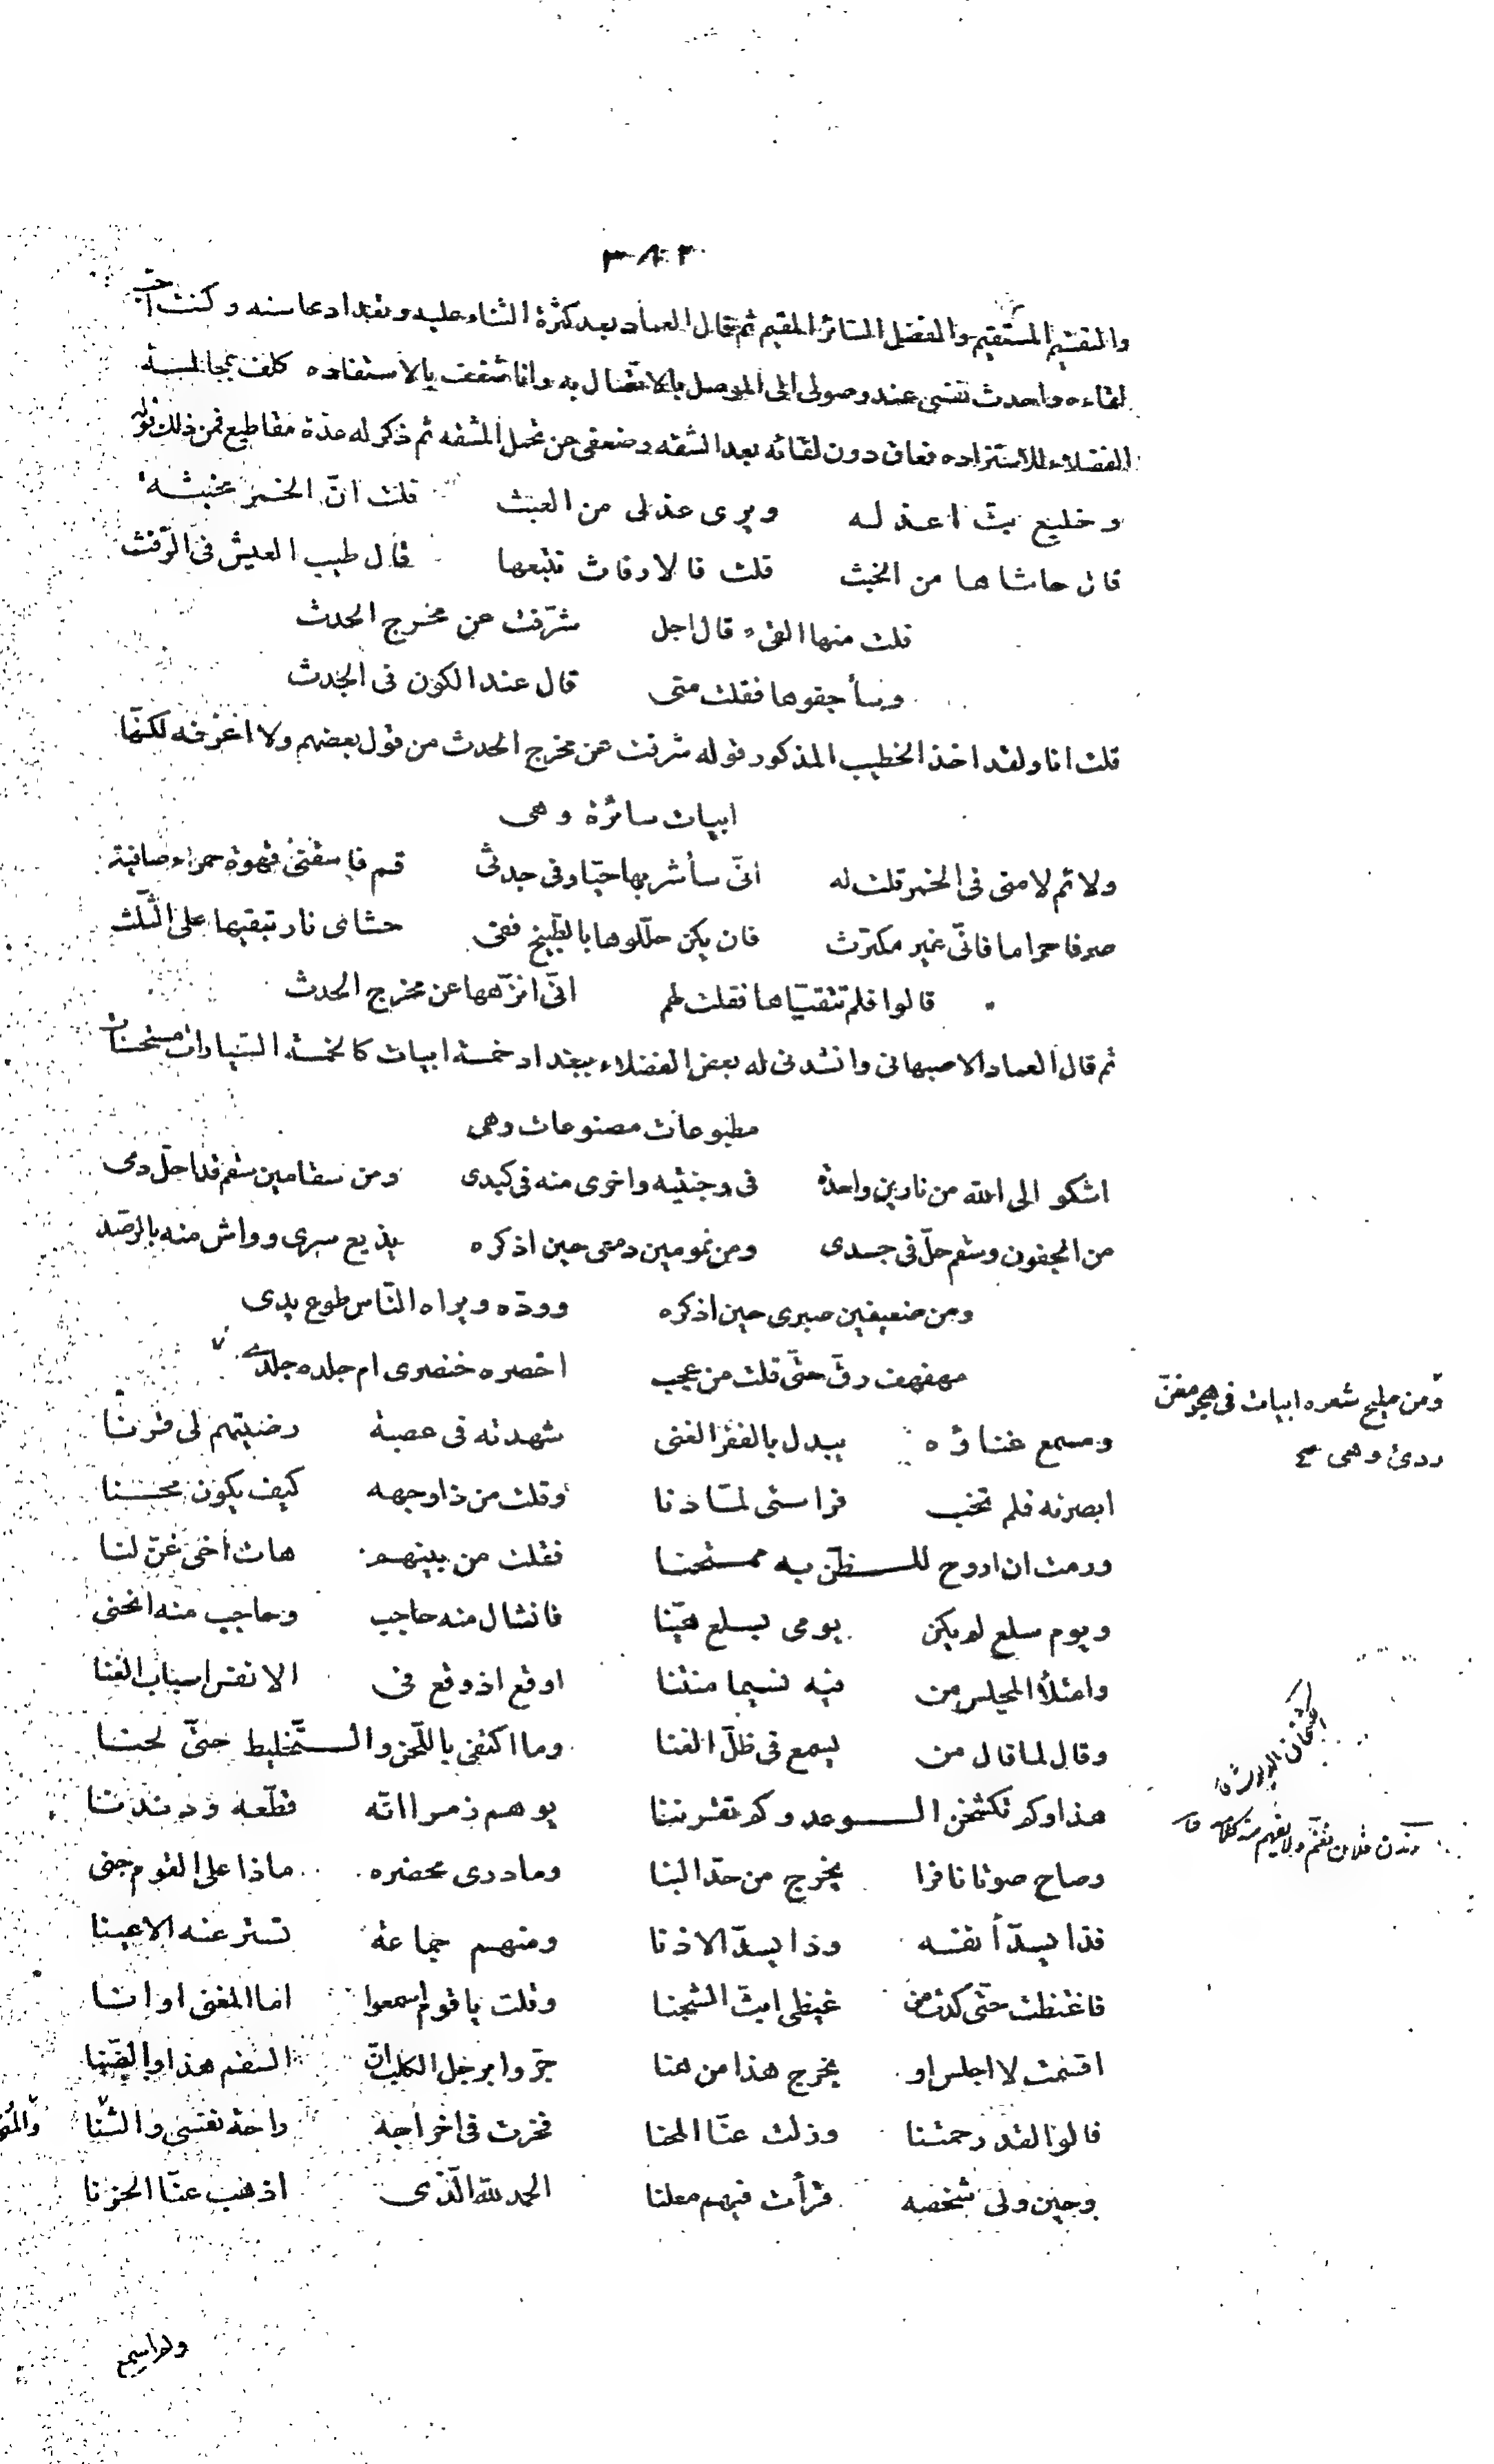 ٣٨٢
والمقسّم المستقيم والفضل السائر المقيم ثم قال العماد بعد كثرة الثناء عليه وتعداد محاسنه وكنت احبّ
لقاءه واحدث نفسى عند وصولى الى الموصل بالاتصال به وانا شغف بالاستفاده كلف بمجالسة
الفضلاء للاستزاده فعاق دون لقائه بعد الشقه وضعفى عن تحمل المشقه ثم ذكر له عدة مقاطيع فمن ذلك قوله
وخليع بتّ اعذله ويرى عذلى من العبث قلت انّ الخمر مخبثة
قال حاشاها من الخبث قلت فالارفاث تتبعها قال طيب العيش فى الرّفث
قلت منها القىء قال اجل شرّفت عن مخرج الحدث
وسأجفوها فقلت متى قال عند الكون فى الجدث
قلت انا ولقد اخذ الخطيب المذكور قوله شرفت عن مخرج الحدث من قول بعضهم ولا اعرفه لكنّها
ابيات سائرة وهى
ولائم لامنى فى الخمر قلت له انّى سأشربها حيّا وفى جدثى قم فاسقنى قهوة حمراء صافية
صرفا حراما فانّى غير مكترث فان يكن حلّلوها بالطبيخ ففى حشاى نار تبقيها على الثلث
قالوا فلم تتقيّاها فقلت لهم انّى انزّهها عن مخرج الحدث
ثم قال العماد الاصبهانى وانشدنى له بعض الفضلاء ببغداد خمسة ابيات كالخمسة السّيارات مستحسنات
مطبوعات مصنوعات وهى
اشكو الى الله من نارين واحدة فى وجنتيه واخرى منه فى كبدى ومن سقامين سقم قد احلّ دمى
من الجفون وسقم حلّ فى جسدى ومن نمومين دمعى حين اذكره يذيع سرى وواش منه بالرصد
ومن ضعيفين صبرى حين اذكره وودّه ويراه النّاس طوع يدى
مهفهف رقّ حتّى قلت من عجب اخصره خنصرى ام جلده جلدى
ومن مليح شعره ابيات فى هجو مغنّ
ردئ وهى
ومسمع غناؤه يبدل بالفقر الغنى شهدته فى عصبة رضيتهم لى قرنا
ابصرته فلم تخب فراستى لمّا دنا وقلت من ذا وجهه كيف يكون محسنا
ورمت ان اروح للظنّ به ممتحنا فقلت من بينهم هات أخى غنّ لنا
ويوم سلع لم يكن يومى بسلع هيّنا فانشال منه حاجب وحاجب منه انحنى
وامتلأ المجلس من فيه نسيما منتنا اوقع اذ وقع فى الانفس اسباب العنا
وقال لما قال من يسمع فى ظلّ الفنا وما اكتفى باللّحن والتّخليط حتّى لحنا
هذا وكم تكشخن الوغد وكم تقرننا يوهم زمرا انّه قطّعه ودندنا
وصاح صوتا نافرا يخرج من حدّ البنا وما درى محضره ماذا على القوم جنى
فذا يسدّ أنفسه وذا يسدّ الاذنا ومنهم جماعة تستر عنه الاعينا
فاغتظت حتّى كدت من غيظى ابثّ الشجنا وقلت يا قوم اسمعوا اما المغنى او انا
اقسمت لا اجلس او يخرج هذا من هنا جرّوا برجل الكلب انّ السقم هذا والضّنا
قالوا لقد رحمتنا وزلت عنّا المحنا فحزت فى اخراجه راحة نفسى والثّنا
وحين ولّى شخصه قرأت فيهم معلنا الحمد لله الّذى اذهب عنّا الحزنا